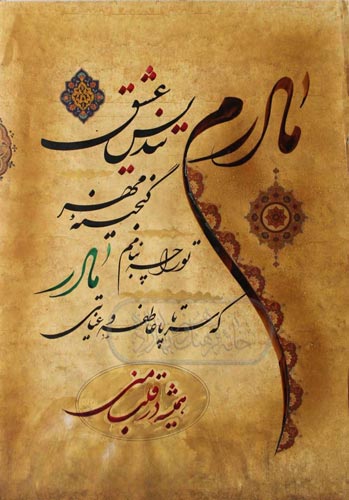 مادرم
تندیس عشق
گنجینهٔ مهر
تو را چه بنامم
مادر
که سر تا پا عاطفه و عنایتی
همیشه در قلب منی